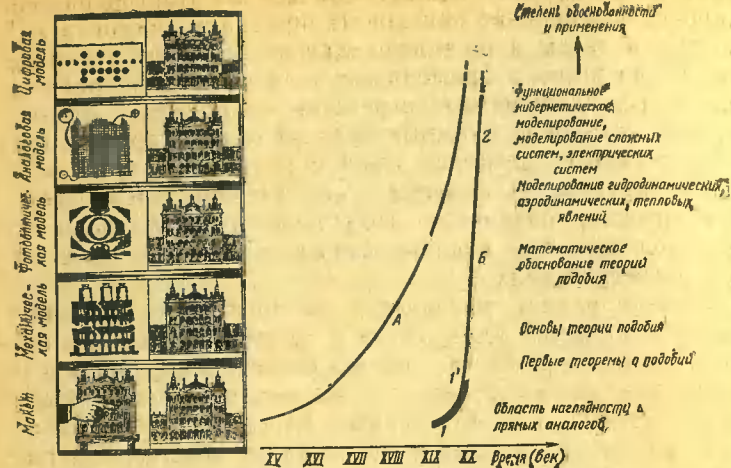 Цифровая
модель
Аналоговая
модель
Фотооптичес-
кая модель
Механичес-
кая модель
Макет
Степень обоснованности
и применения
Функциональное
кибернетическое
моделирование,
моделирование сложных
систем, электрических
систем
Моделирование гидродинамических,
аэродинамических, тепловых
явлений
Математическое
обоснование теорий
подобия
Основы теории подобия
Первые теоремы о подобии
Область наглядности и
прямых аналогов
А
Б
2
1'
1
XV XVI XVII XVIII XIX XX Время (век)